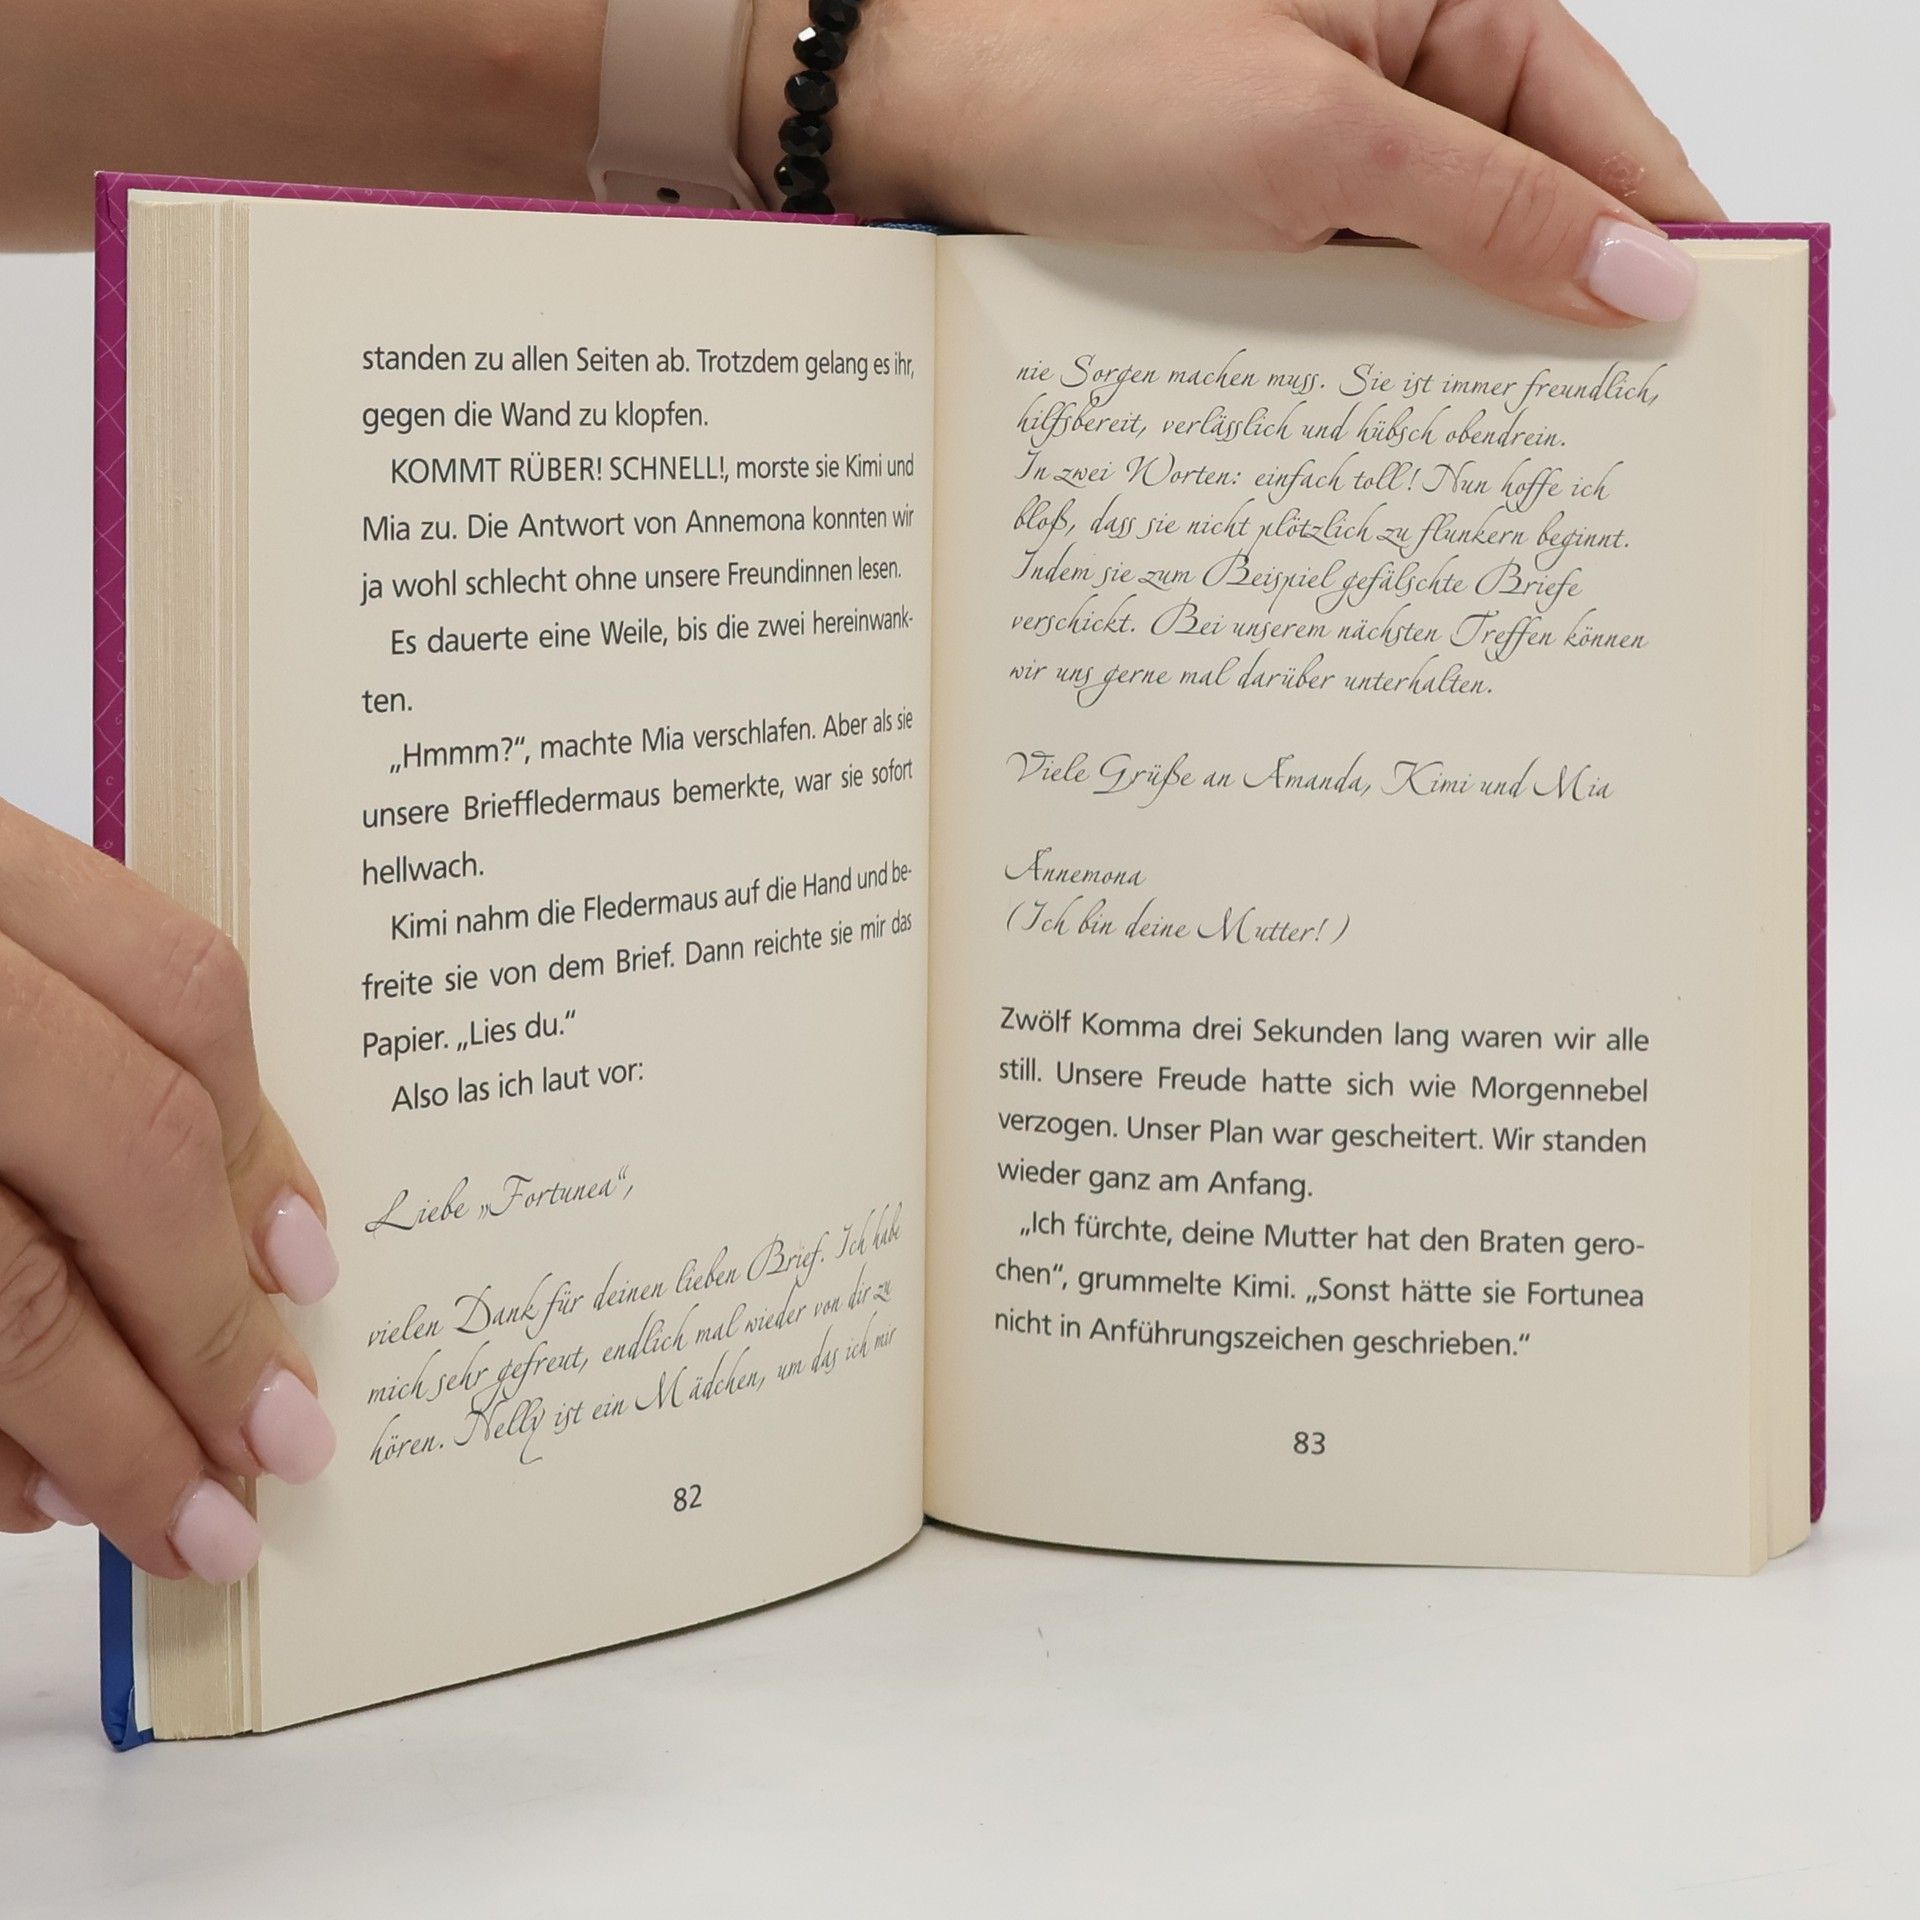 standen zu allen Seiten ab. Trotzdem gelang es ihr,
gegen die Wand zu klopfen.
KOMMT RÜBER! SCHNELL!, morste sie Kimi und
Mia zu. Die Antwort von Annemona konnten wir
ja wohl schlecht ohne unsere Freundinnen lesen.
Es dauerte eine Weile, bis die zwei hereinwank-
ten.
„Hmmm?“, machte Mia verschlafen. Aber als sie
unsere Brieffledermaus bemerkte, war sie sofort
hellwach.
Kimi nahm die Fledermaus auf die Hand und be-
freite sie von dem Brief. Dann reichte sie mir das
Papier. „Lies du.“
Also las ich laut vor:
Liebe „Fortunea“,
vielen Dank für deinen lieben Brief. Ich habe
mich sehr gefreut, endlich mal wieder von dir zu
hören. Nelly ist ein Mädchen, um das ich mir
82
nie Sorgen machen muss. Sie ist immer freundlich,
hilfsbereit, verlässlich und hübsch obendrein.
In zwei Worten: einfach toll! Nun hoffe ich
bloß, dass sie nicht plötzlich zu flunkern beginnt.
Indem sie zum Beispiel gefälschte Briefe
verschickt. Bei unserem nächsten Treffen können
wir uns gerne mal darüber unterhalten.
Viele Grüße an Amanda, Kimi und Mia
Annemona
(Ich bin deine Mutter!)
Zwölf Komma drei Sekunden lang waren wir alle
still. Unsere Freude hatte sich wie Morgennebel
verzogen. Unser Plan war gescheitert. Wir standen
wieder ganz am Anfang.
„Ich fürchte, deine Mutter hat den Braten gero-
chen“, grummelte Kimi. „Sonst hätte sie Fortunea
nicht in Anführungszeichen geschrieben.“
83